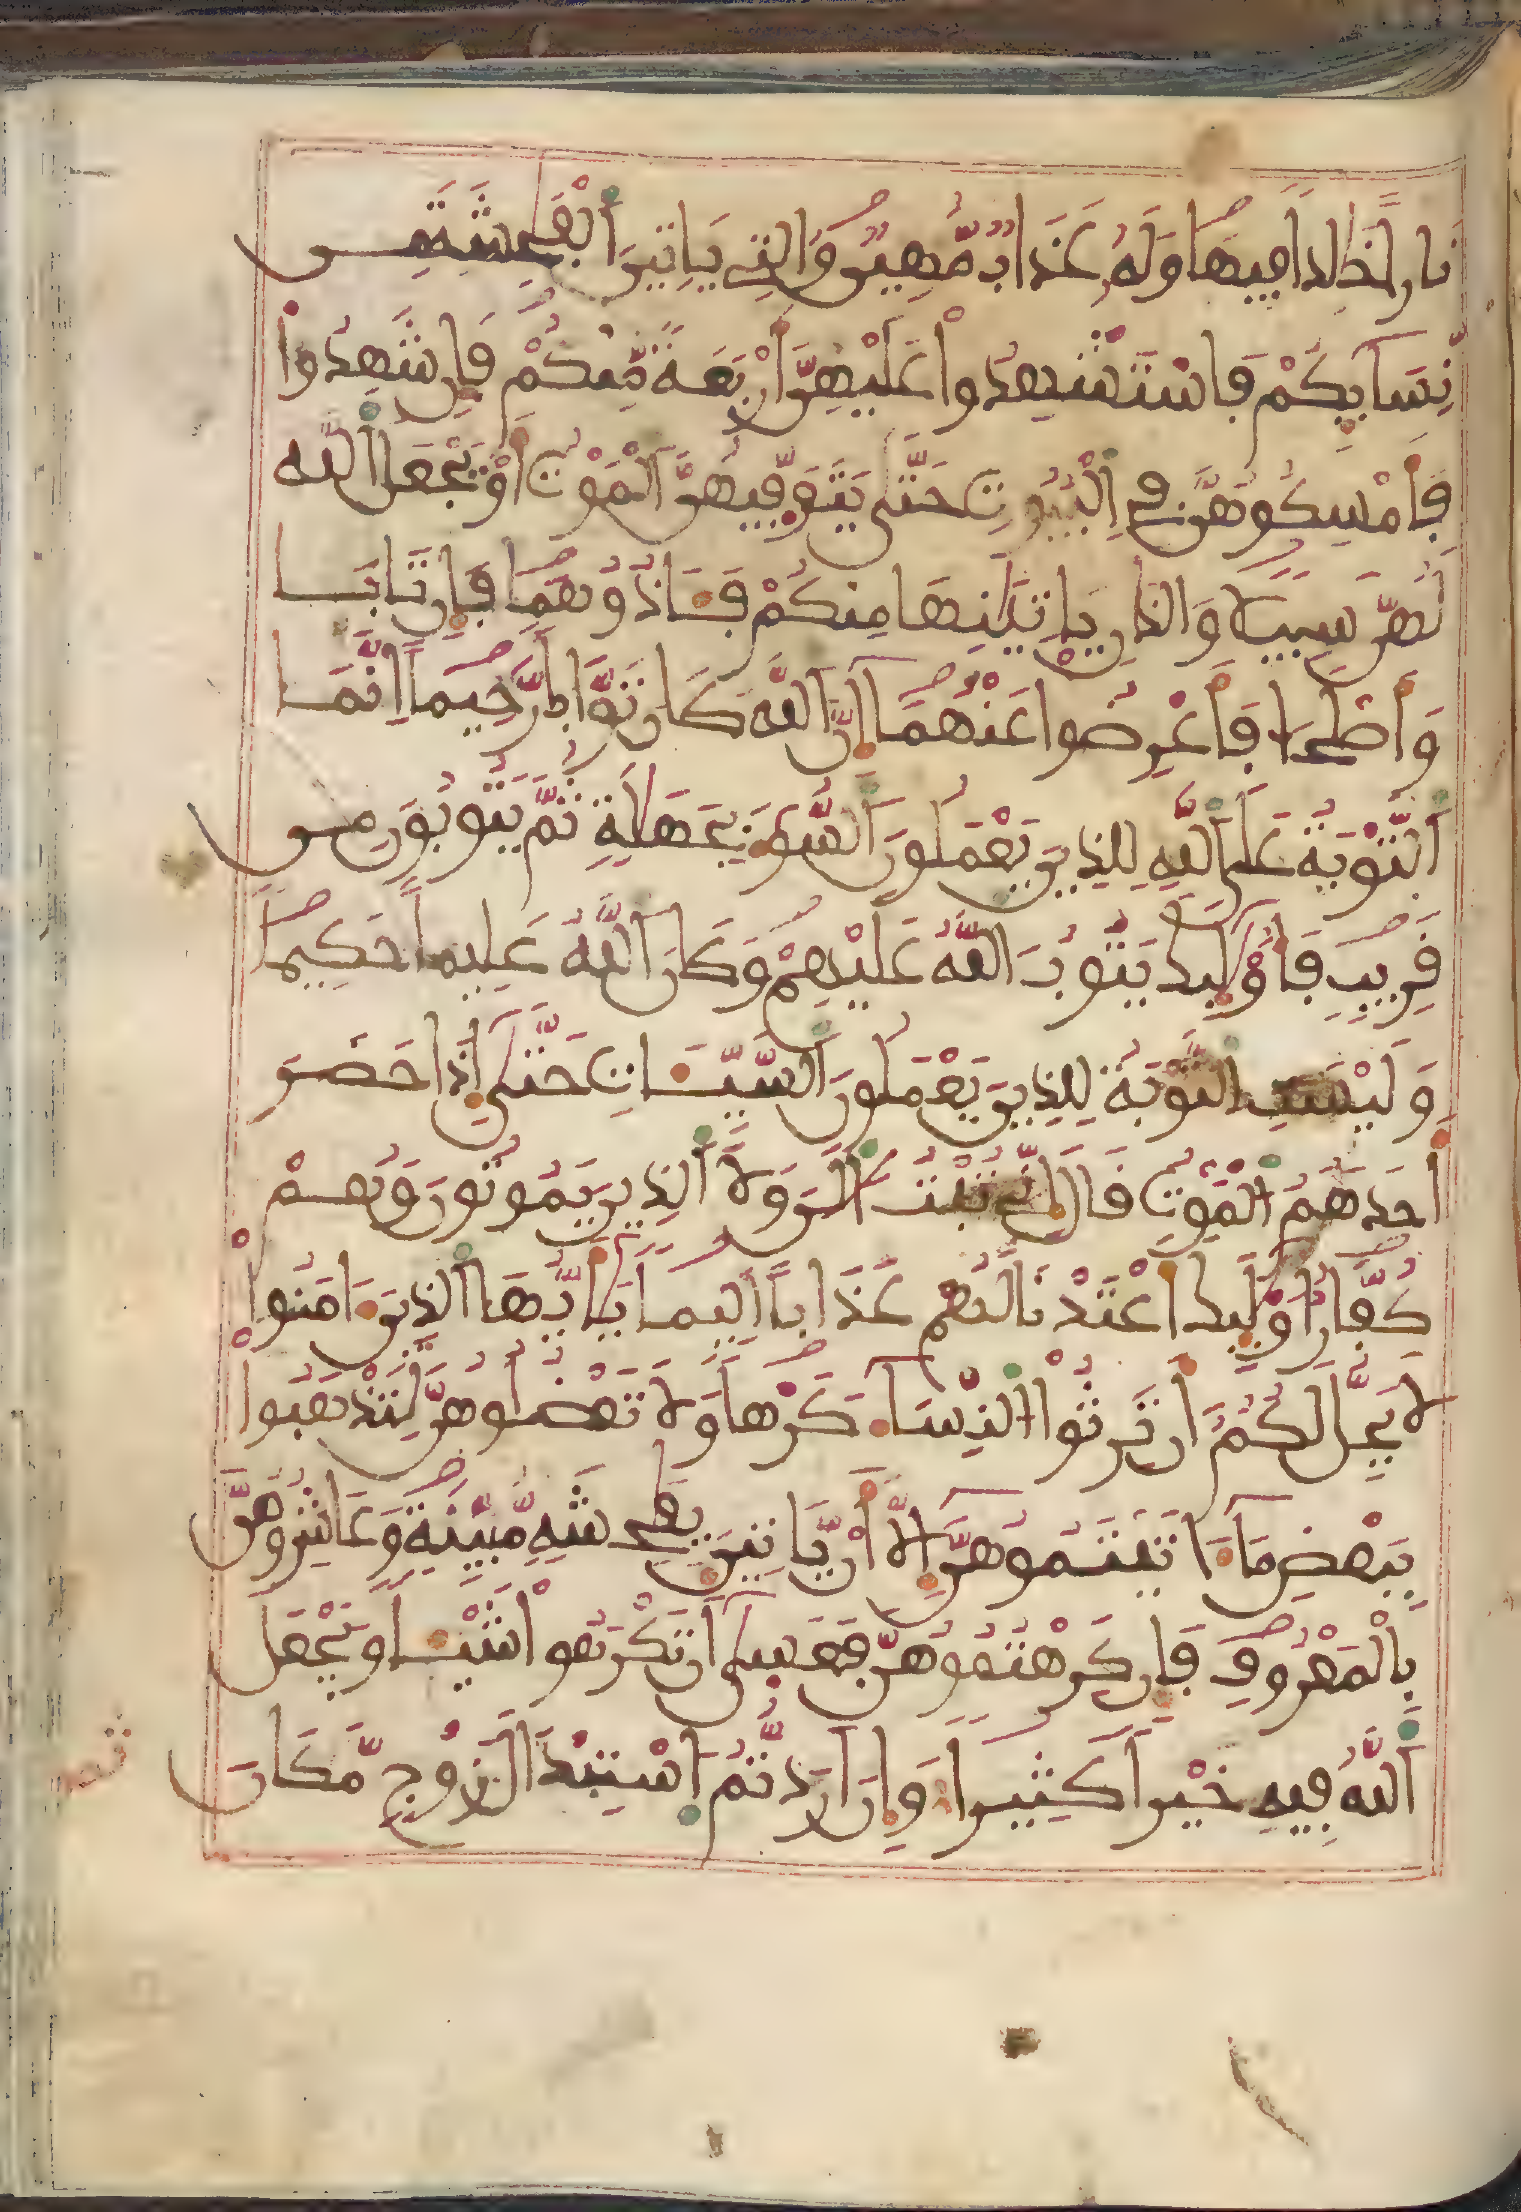 نَاراً خَٰلِداً فِيهَا وَلَهُۥ عَذَابٌ مُّهِينٌ وَالَّٰتِے يَاتِينَ اَ۬لْفَٰحِشَةَ مِن
نِّسَآئِكُمْ فَاسْتَشْهِدُواْ عَلَيْهِنَّ أَرْبَعَةً مِّنكُمْ فَإِن شَهِدُواْ
فَأَمْسِكُوهُنَّ فِے اِ۬لْبُيُوتِ حَتَّىٰ يَتَوَفّٰيهُنَّ اَ۬لْمَوْتُ أَوْ يَجْعَلَ اَ۬للَّهُ
لَهُنَّ سَبِيلًا وَالذَٰنِ يَاتِيَٰنِهَا مِنكُمْ فَـَٔاذُوهُمَا فَإِن تَابَا
وَأَصْلَحَا فَأَعْرِضُواْ عَنْهُمَآ إِنَّ اَ۬للَّهَ كَانَ تَوَّاباً رَّحِيماً اِنَّمَا
اَ۬لتَّوْبَةُ عَلَى اَ۬للَّهِ لِلذِينَ يَعْمَلُونَ اَ۬لسُّوٓءَ بِجَهَٰلَةٖ ثُمَّ يَتُوبُونَ مِن
قَرِيبٖ فَأُوْلَٰٓئِكَ يَتُوبُ اُ۬للَّهُ عَلَيْهِمْ وَكَانَ اَ۬للَّهُ عَلِيماً حَكِيماً
وَلَيْسَتِ اِ۬لتَّوْبَةُ لِلذِينَ يَعْمَلُونَ اَ۬لسَّيِّـَٔاتِ حَتَّىٰٓ إِذَا حَضَرَ
أَحَدَهُمُ اُ۬لْمَوْتُ قَالَ إِنِّے تُبْتُ اُ۬لَٰنَ وَلَا اَ۬لذِينَ يَمُوتُونَ وَهُمْ
كُفَّارٌ أُوْلَٰٓئِكَ أَعْتَدْنَا لَهُمْ عَذَاباً أَلِيماً يَٰٓأَيُّهَا اَ۬لذِينَ ءَامَنُواْ
لَا يَحِلُّ لَكُمُۥٓ أَن تَرِثُواْ اُ۬لنِّسَآءَ كَرْهاً وَلَا تَعْضُلُوهُنَّ لِتَذْهَبُواْ
بِبَعْضِ مَآ ءَاتَيْتُمُوهُنَّ إِلَّآ أَنْ يَّاتِينَ بِفَٰحِشَةٖ مُّبَيِّنَةٖ وَعَاشِرُوهُنَّ
بِالْمَعْرُوفِ فَإِن كَرِهْتُمُوهُنَّ فَعَسَىٰٓ أَن تَكْرَهُواْ شَيْـٔاً وَيَجْعَلَ
اَ۬للَّهُ فِيهِ خَيْراً كَثِيراً وَإِنْ أَرَدتُّمُ اُ۪سْتِبْدَالَ زَوْجٖ مَّكَانَ